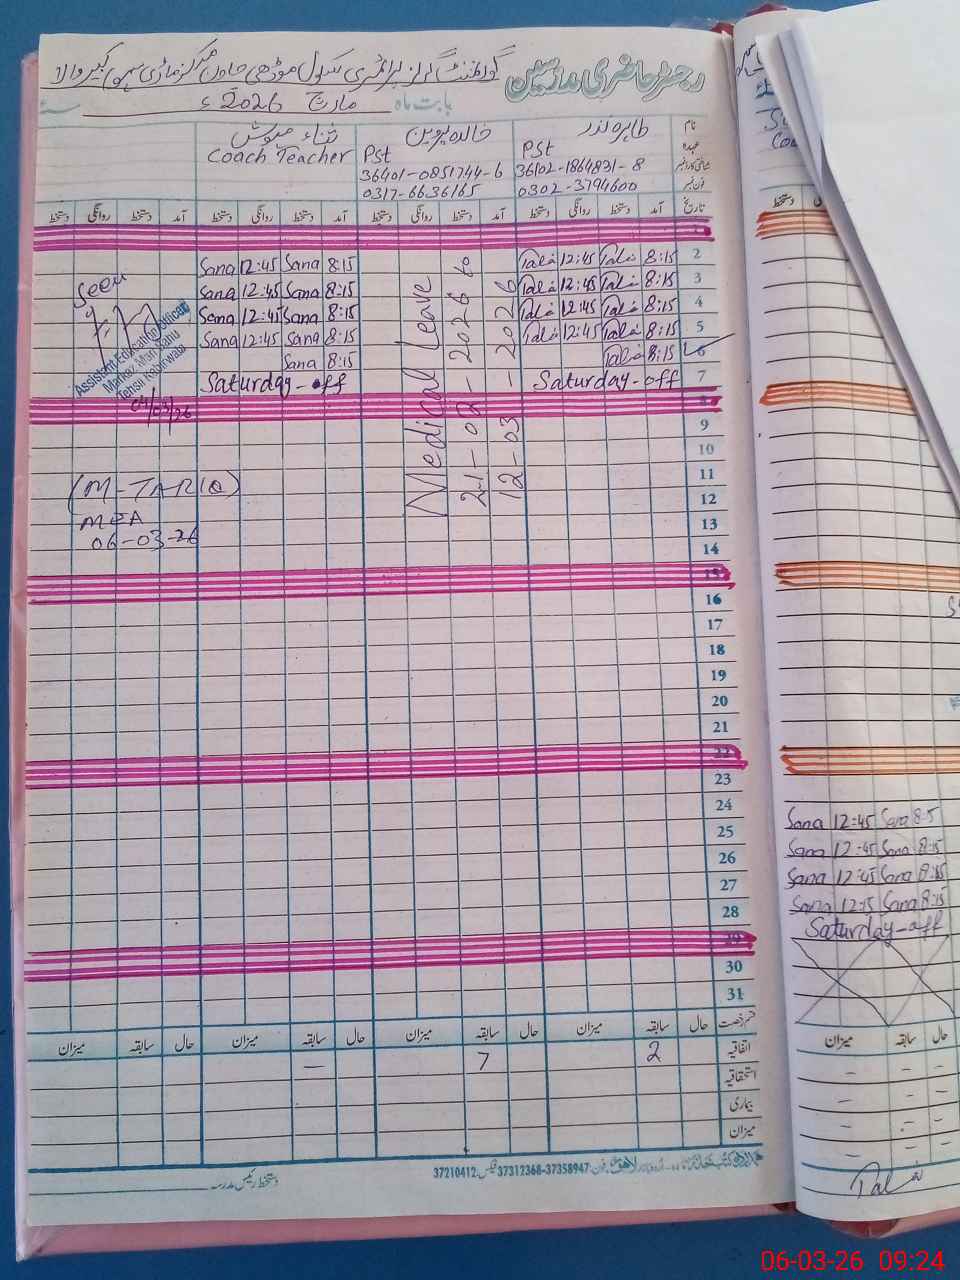 رجسٹر حاضری مدرسین گورنمنٹ گرلز پرائمری سکول موڈھی جاول مرکز ماڑی سہو کبیر والا
بابت ماہ مارچ 2026ء
نام طاہرہ نذر خالدہ پروین ثناء مہوش
عہدہ Pst Pst Coach Teacher
شناختی کارڈ نمبر 36102-1864831-8 36401-0851744-6
فون نمبر 0302-3794600 0317-6636165
تاریخ آمد دستخط روانگی دستخط آمد دستخط روانگی دستخط آمد دستخط روانگی دستخط آمد دستخط روانگی دستخط
1
Sana 12:45 Sana 8:15 12:45 8:15 2
Sana 12:45 Sana 8:15 12:45 8:15 3
Sana 12:45 Sana 8:15 12:45 8:15 4
Sana 12:45 Sana 8:15 12:45 8:15 5
Sana 8:15 8:15 6
Saturday-off Saturday-off 7
8
9
10
11
12
13
14
15
16
17
18
19
20
21
22
23
24
25
26
27
28
29
30
31
Medical Leave
21-02-2026 to
12-03-2026
Seen
Assistant Education Officer
Markaz Mari Sahu
Tehsil Kabirwala
04/03/26
(M-TARIQ)
MEA
06-03-26
قسم رخصت حال سابقہ میزان حال سابقہ میزان حال سابقہ میزان حال سابقہ میزان
اتفاقیہ 2 7 —
استحقاقیہ
بیماری
میزان
37210412 فیکس: 37312368-37358947 فون:
دستخط رئیس مدرسہ
دستخط
Sana 12:45 Sana 8:5
Sana 12:45 Sana 8:15
Sana 12:45 Sana 8:15
Sana 12:15 Sana 8:15
Saturday-off
حال سابقہ میزان
06-03-26 09:24